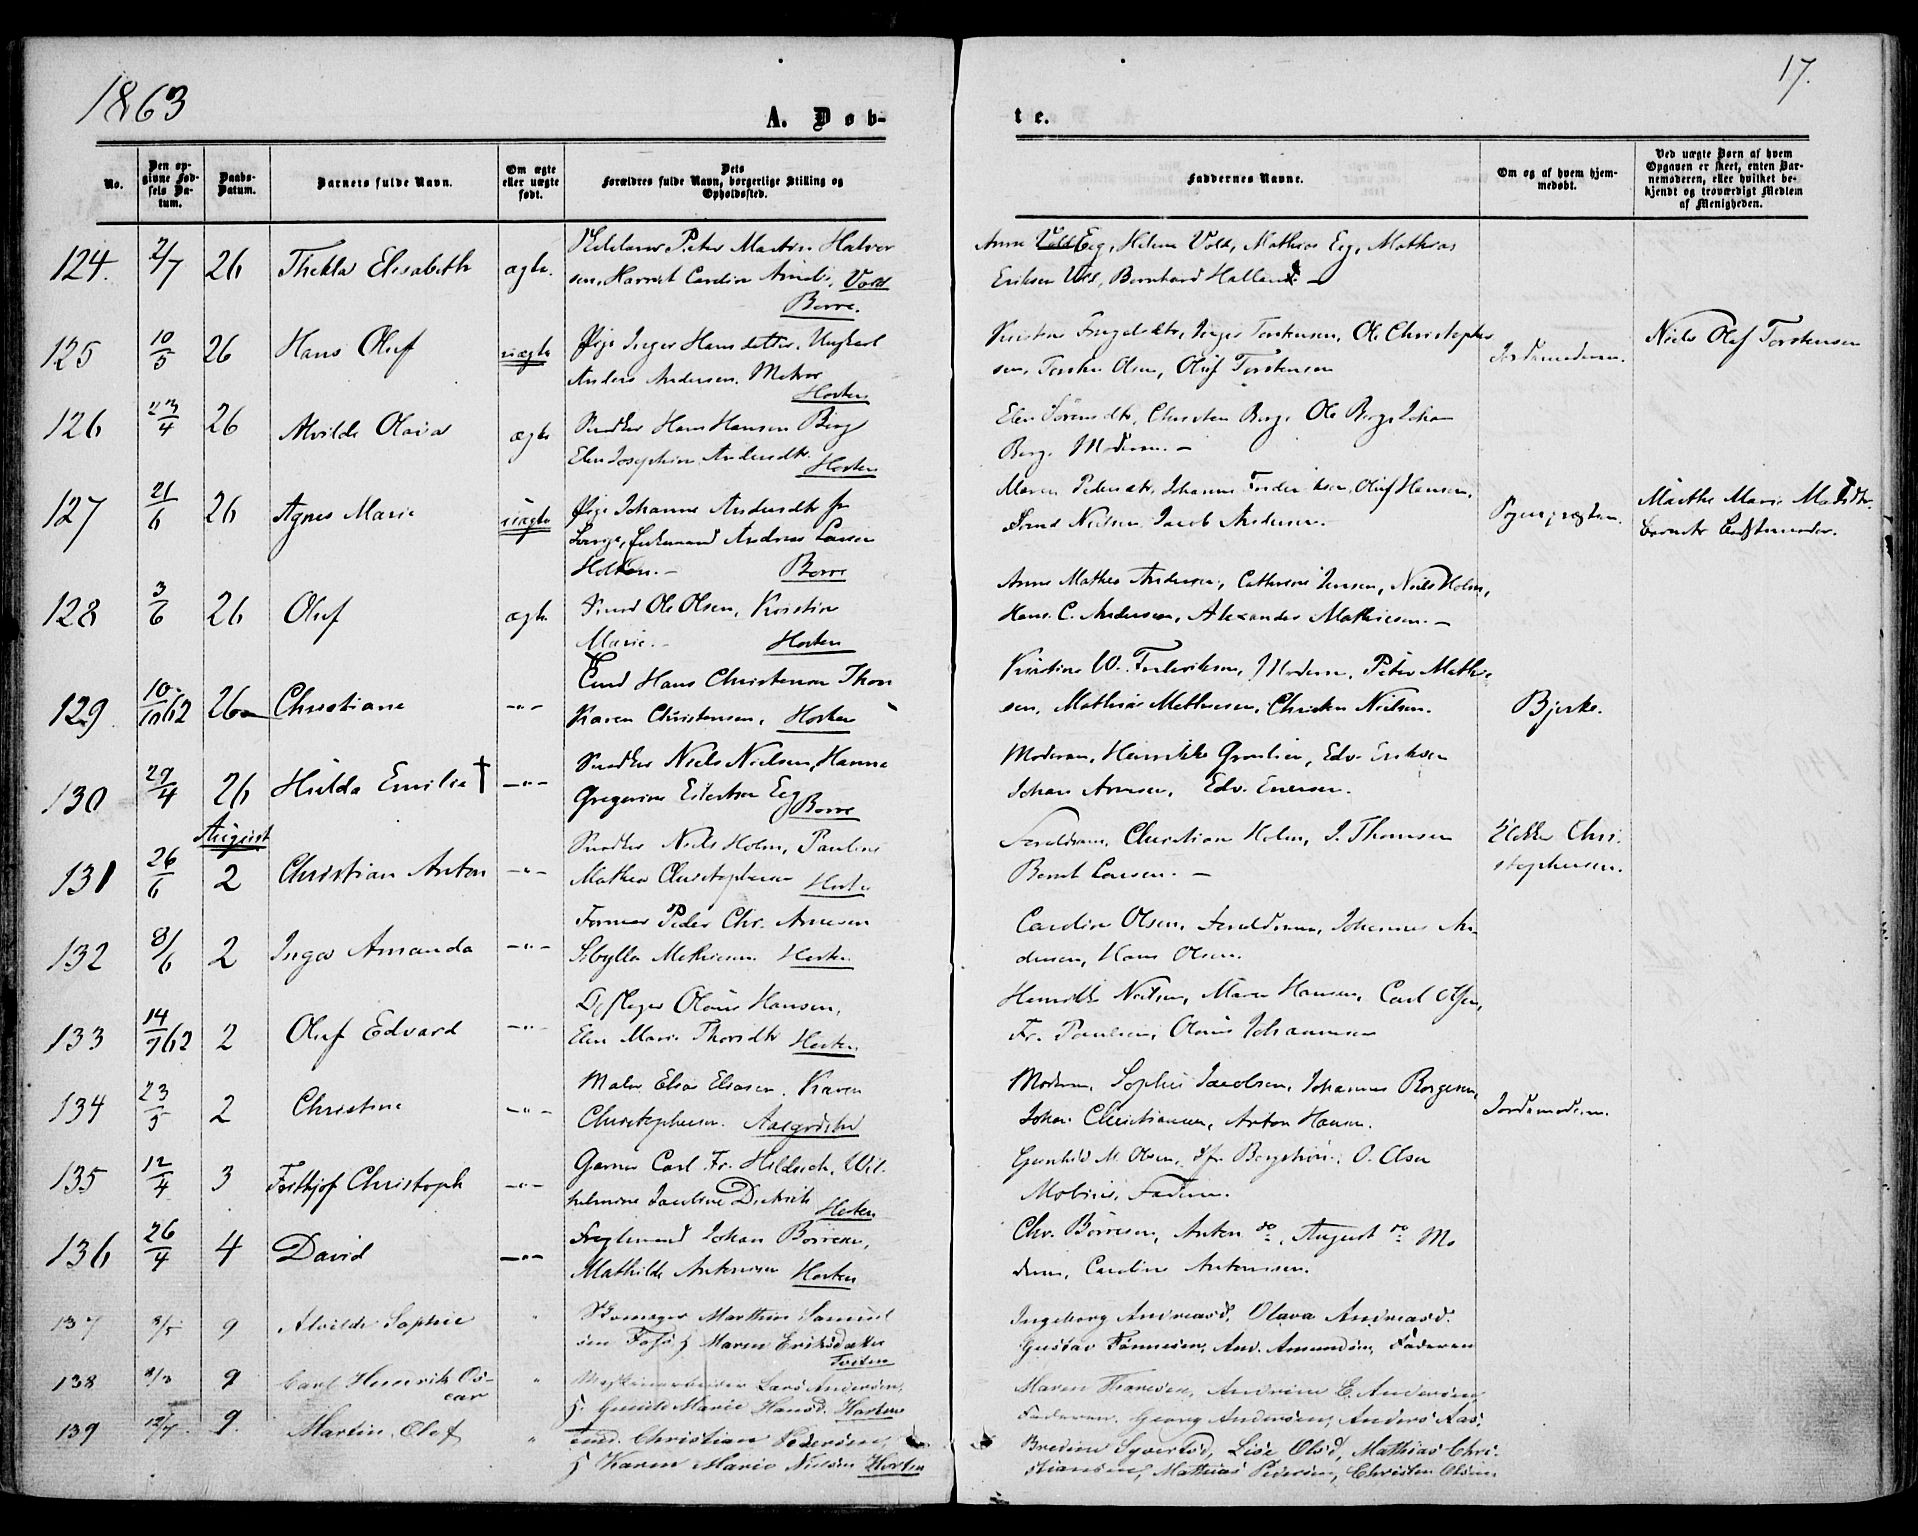 1863
17.
A. Døb-
te.
No.
Den op-
givne Fød-
sels Da-
tum.
Daabs-
Datum.
Barnets fulde Navn.
Om ægte
eller uægte
født.
Dets
Forældres fulde Navn, borgerlige Stilling og
Opholdssted.
Faddernes Navne.
Om og af hvem hjem-
medøbt.
Ved uægte Børn af hvem
Opgaven er skeet, enten Bar-
nemoderen, eller hvilket be-
kjendt og troværdigt Medlem
af Menigheden.
124. 2/7 26 Thekla Elisabeth ægte. Peter Martin Halvor
sen, Harriet Caroline Vold
Borre.
Anne Eeg, Helene Vold, Mathias Eeg, Mathias
Eriksen Vold, Bernhard Halland. —
125 10/5 26 Hans Oluf uægte Pige Inger Hansdatter, Ungkarl
Anders Andersen, Matros
Horten
Inger Torstensen, Ole Christopher
sen, Torsten Olsen, Oluf Torstensen
Jordemoderen.
Niels Olaf Torstensen
126 23/4 26 Alvilde Olava ægte Snedker Hans Hansen Berg
Elen Josephine Andersdtr. Horten
Elen Sørensdtr, Christen Berg, Ole Berg, Johan
Berg, Moderen. —
127 21/6 26 Agnes Marie uægte Pige Johanne Andersdtr fr
Andreas Larsen
Holten. — Borre
Maren Pedersdtr, Johannes Frederiksen, Oluf Hansen,
Nielsen, Jacob Andersen. —
Marthe Marie Madsdtr.
Barnets
128 3/6 26 Oluf ægte Ole Olsen, Kristine
Marie. — Horten
Anne Mathea Andersen, Cathrine Jensen, Niels Holm,
Hans C. Andersen, Alexander Mathiesen. —
129 10/10 62 26 Christiane —"— Hans Christensen Thon
Karen Christensen, Horten
Kristine W. Frederiksen, Moderen, Peter Mathie
sen, Mathias Mathiesen, Christen Nielsen.
Bjerke.
130 29/4 26 Hulda Emilie † —"— Snedker Niels Nielsen, Hanna
Gregorine Eilertsen Eeg Borre
Moderen, Henrikke Edv. Eriksen
Johan Arnesen, Edv. Enersen.
August
131 26/6 2 Christian Anton —"— Snedker Niels Holm, Pauline
Mathea Christophersen Horten
Forældrene, Christian Holm, J. Thomsen
Bernt Larsen. —
Chri-
stophersen.
132 8/6 2 Inga Amanda —"— Former Peder Chr. Arnesen
Sibylla Mathiesen Horten
Caroline Olsen, Forældrene, Johannes An-
dersen, Hans Olsen.
133 14/9 62 2 Oluf Edvard —"— Olaus Hansen,
Elen Marie Thorsdtr Horten
Henrikke Nielsen, Maren Hansen, Carl Olsen,
Fr. Paulsen, Olaus Johannesen
134 23/5 2 Christine —"— Maler Elias Eliasen, Karen
Christophersen. Aasgrdstrd
Moderen, Sophie Jacobsen, Johannes Borgesen,
Johan Christiansen, Anton Hansen.
Jordemoderen.
135 12/4 3 Frithjof Christoph —"— Garver Carl Fr. Wil-
helmine Jacobine Dietrich Horten
Gunhild M. Olsen, Bergstrøm, O. Olsen
Mobius, Faderen.
136 26/4 4 David —"— Johan Børresen,
Mathilde Antonsen Horten
Chr. Børresen, Anton do, August do Mo
deren, Caroline Antonsen.
137 8/5 9 Alvilde Sophie " Skomager Marthin Samuel
sen & Maren Eriksdatter
Ingeborg Andreasd. Olava Andreasd.
Gustav Tønnesen, And. Amundsen, Faderen
138 9 Carl Henrik Os-
car " Maskinarbeider Lars Andersen,
& Gunild Marie Hansd. Horten
Maren Thoresen, Andrine E. Andersen
Faderen, Georg Andersen, Anders Aas.
139 12/7 9. Martin Olof " Christian Pedersen,
& Karen Marie Nielsen Horten
Bredine Syvertsd, Lise Olsd, Mathias Chri-
stiansen, Mathias Pedersen, Christen Olsen